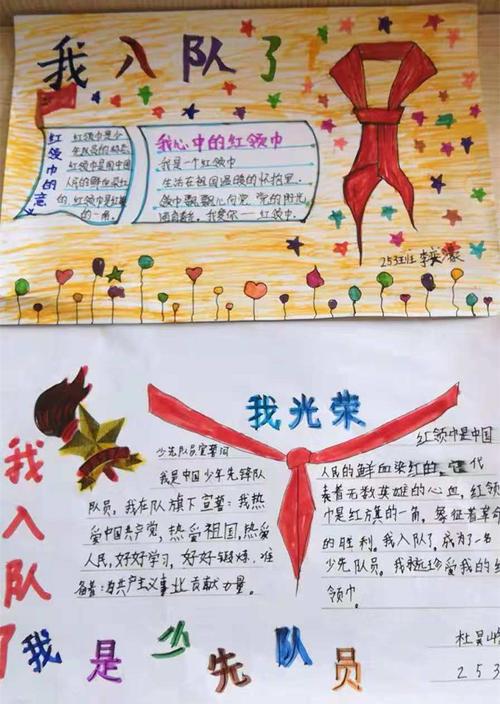 我入队了
红领巾的意义
红领巾是少
红领巾是国中国
人民的鲜血染红
的 红领巾是红旗
的一角。
我心中的红领巾
我是一个红领巾
生活在祖国温暖的怀抱里
领巾飘飘心向党 党的阳光
我爱你——红领巾
253班 李奕
我入队了
我光荣
少先队员宣誓词
我是中国少年先锋队
队员，我在队旗下宣誓：我热
爱中国共产党，热爱祖国，热爱
人民，好好学习，好好锻炼，准
备着：为共产主义事业贡献力量。
红领巾是中国
人民的鲜血染红的，代
表着无数英雄的心血，红领
巾是红旗的一角，象征着革命
的胜利。我入队了，成为了一名
少先队员。我永远珍爱我的红
领巾。
我是少先队员
杜昊
253